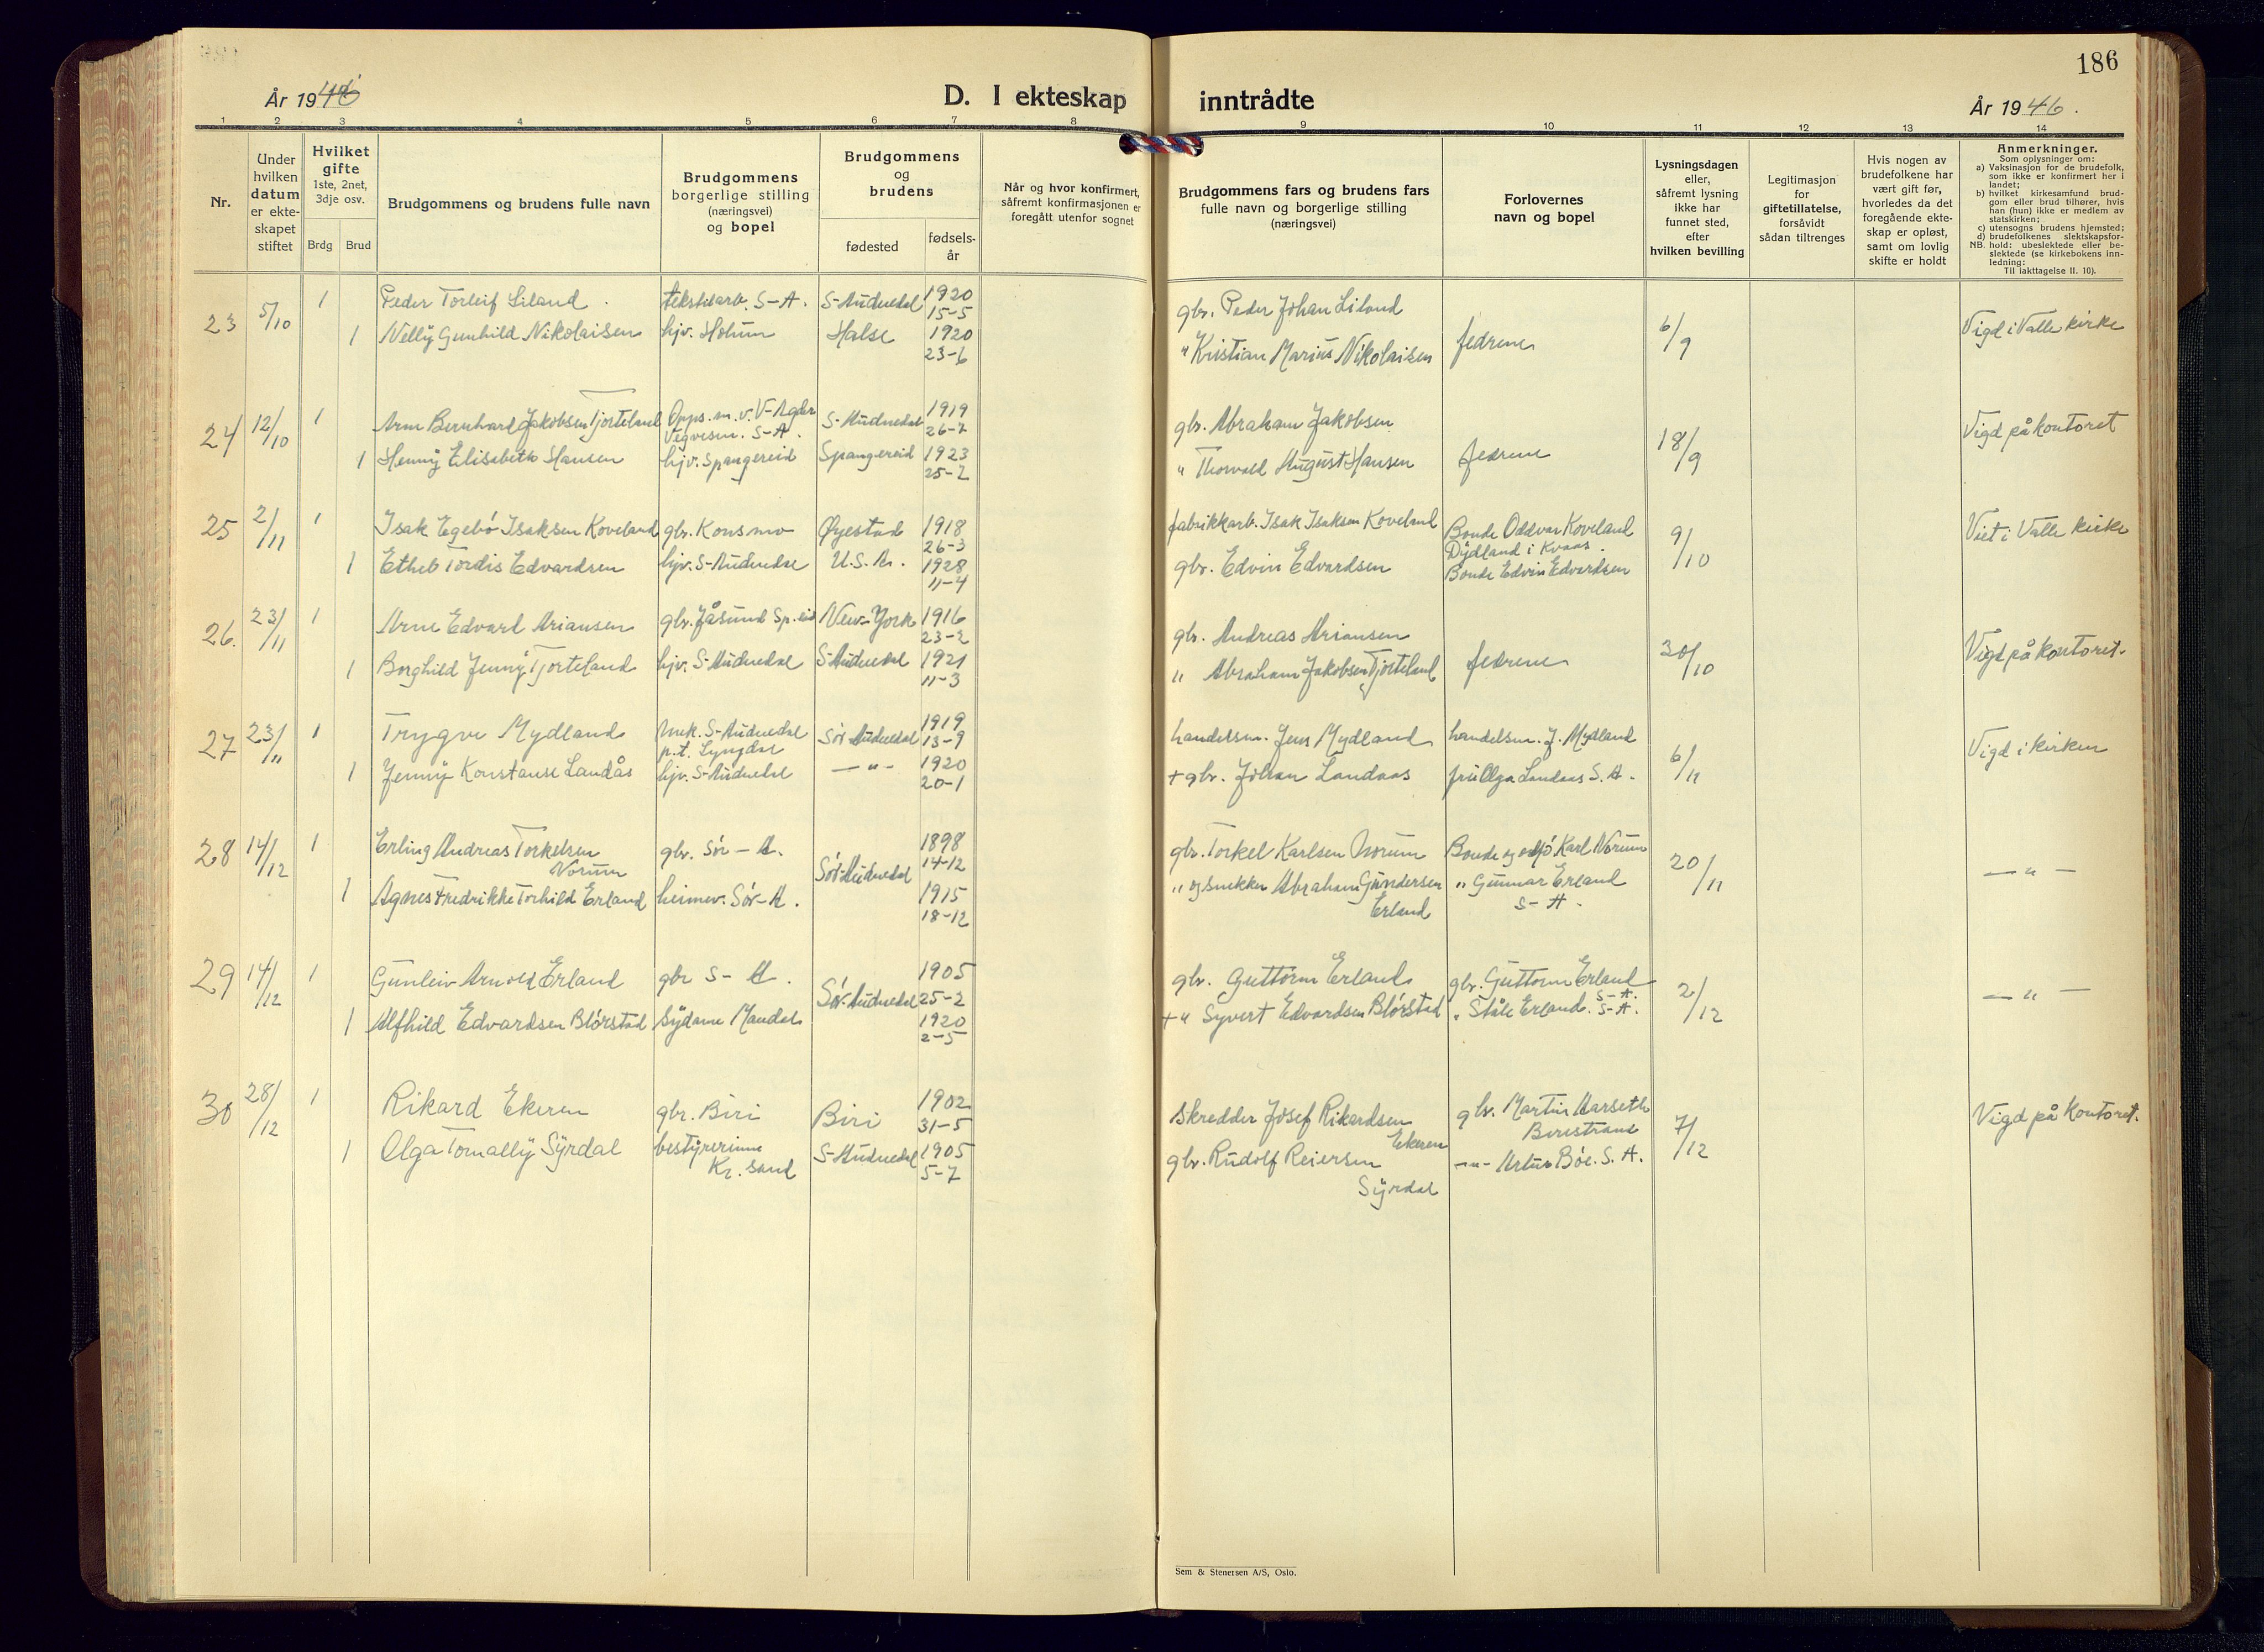 186
År 1946
D. I ekteskap inntrådte
År 1946.
1 2 3 4 5 6 7 8 9 10 11 12 13 14
Nr.
Under
hvilken
datum
er ekte-
skapet
stiftet
Hvilket
gifte
1ste, 2net,
3dje osv.
Brdg
Brud
Brudgommens og brudens fulle navn
Brudgommens
borgerlige stilling
(næringsvei)
og bopel
Brudgommens
og
brudens
fødested
fødsels-
år
Når og hvor konfirmert,
såfremt konfirmasjonen er
foregått utenfor sognet
Brudgommens fars og brudens fars
fulle navn og borgerlige stilling
(næringsvei)
Forlovernes
navn og bopel
Lysningsdagen
eller,
såfremt lysning
ikke har
funnet sted,
efter
hvilken bevilling
Legitimasjon
for
giftetillatelse,
forsåvidt
sådan tiltrenges
Hvis nogen av
brudefolkene har
vært gift før,
hvorledes da det
foregående ekte-
skap er opløst,
samt om lovlig
skifte er holdt
Anmerkninger.
Som oplysninger om:
a) Vaksinasjon for de brudefolk,
som ikke er konfirmert her i
landet;
b) hvilket kirkesamfund brud-
gom eller brud tilhører, hvis
han (hun) ikke er medlem av
statskirken;
c) utensogns brudens hjemsted;
d) brudefolkenes slektskapsfor-
NB. hold: ubeslektede eller be-
slektede (se kirkebokens inn-
ledning:
Til iakttagelse II. 10).
23 5/10 1 Peder Torleif Liland tekstilarb. S-A. S-Audnedal 1920 15-5 gbr. Peder Johan Liland fedrene 6/9 Vigd i Valle kirke
1 Nelly Gunhild Nikolaisen hjv. Holum Halse 1920 23-6 " Kristian Marius Nikolaisen
24 12/10 1 Arne Bernhard Jakobsen Tjorteland Opps. m. v. V-Agder Vegvesen. S-A. S-Audnedal 1919 26-7 gbr. Abraham Jakobsen fedrene 18/9 Vigd på kontoret
1 Henny Elisabeth Hansen hjv. Spangereid Spangereid 1923 25-2 " Thorvald August Hansen
25 2/11 1 Isak Egebø Isaksen Koveland gbr. Konsmo Øyestad 1918 26-3 fabrikkarb. Isak Isaksen Koveland Bonde Oddvar Koveland Dydland i Kvaas. 9/10 Viet i Valle kirke
1 Tordis Edvardsen hjv. S-Audnedal U.S.A. 1928 11-4 gbr. Edvin Edvardsen Bonde Edvin Edvardsen
26. 23/11 1 Arne Edvard Ariansen gbr. Jåsund Sp.eid New-York 1916 23-2 gbr. Andreas Ariansen fedrene 30/10 Vigd på kontoret.
1 Borghild Jenny Tjorteland hjv. S-Audnedal S-Audnedal 1921 11-3 " Abraham Jakobsen Tjorteland
27 23/11 1 Trygve Mydland mek. S-Audnedal p.t. Lyngdal Sør Audnedal 1919 13-9 handelsm. Jens Mydland handelsm. J. Mydland 6/11 Vigd i kirken
1 Jenny Konstanse Landås hjv. S-Audnedal — " — 1920 20-1 + gbr. Johan Landaas fru Olga Landaas S. A.
28 14/12 1 Erling Andreas Torkelsen Norum gbr. Sør-A. Sør-Audnedal 1898 14-12 gbr. Torkel Karlsen Norum Bonde og Karl Norum 20/11 — " —
1 Agnes Fredrikke Torhild Erland heimev. Sør-A. 1915 18-12 " og snekker Abraham Gundersen Erland " Gunnar Erland S-A.
29 14/12 1 Gunleiv Arnold Erland gbr S-A. Sør-Audnedal 1905 25-2 gbr. Guttorm Erland gbr. Guttorm Erland S-A. 2/12 — " —
1 Alfhild Edvardsen Blørstad sydame Mandal 1920 2-5 + " Syvert Edvardsen Blørstad " Ståle Erland. S-A.
30 28/12 1 Rikard Ekeren gbr. Biri Biri 1902 31-5 Skredder Josef Rikardsen Ekeren gbr. Martin Aarseth Biristrand 7/12 Vigd på Kontoret.
1 Olga Tomally Syrdal bestyrerinne Kr. sand S-Audnedal 1905 5-7 gbr. Rudolf Reiersen Syrdal — " — Artur Bøe. S. A.
Sem & Stenersen A/S, Oslo.